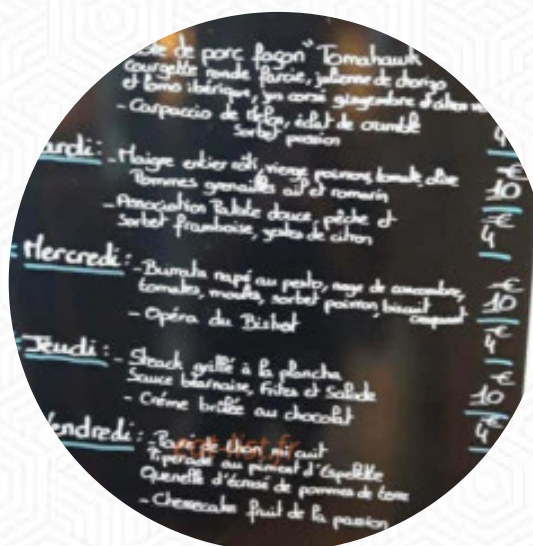 de porc façon "Tomahawk"
courgette ronde farcie, julienne de chorizo
et lomo ibérique, jus corsé gingembre
- Carpaccio de melon, éclat de crumble
Sorbet passion
4€
ardi: - Maigre entier rôti, vierge poivrons tomate, olive
Pommes grenailles ail et romarin
10€
- Association Patate douce, pêche et
Sorbet framboise, gotes de citron
4€
Mercredi: - Burrata napé au pesto, nage de concombre,
tomates, moules, sorbet poivron, biscuit
croquant
10€
- Opéra du Bistrot
4€
Jeudi: - Steack grillé à la plancha
Sauce béarnaise, Frites et Salade
10€
- Crème brûlée au chocolat
4€
endredi: - Pavé de thon mi cuit
Piperade au piment d'Espelette
Quenelle d'écrasé de pommes de terre
- Cheesecake fruit de la passion